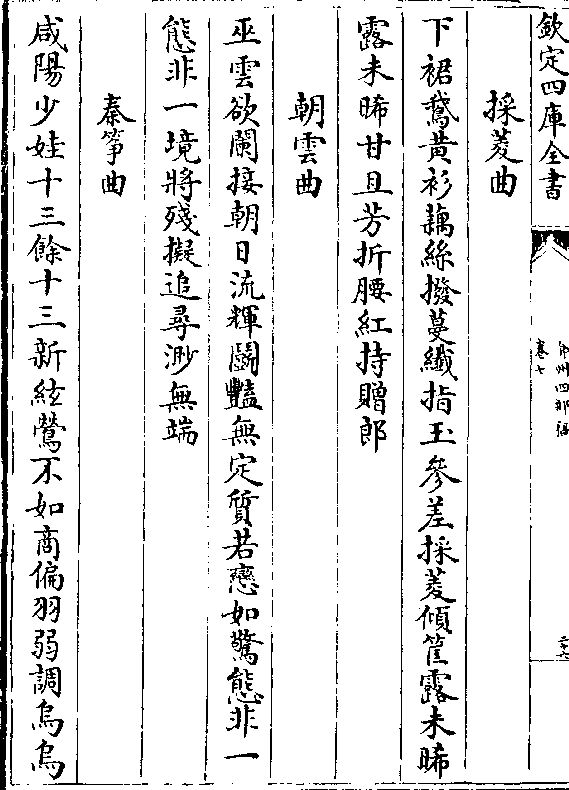 欽定四庫全書
弇州四部稿
卷七
二十六
採菱曲
下裙鵞黄衫藕絲撥蔓纖指玉參差採菱傾筐露未晞
露未晞甘且芳折腰紅持贈郎
朝雲曲
巫雲欲闌接朝日流輝鬭豔無定質若戀如驚態非一
態非一境將殘擬追尋渺無端
秦筝曲
咸陽少娃十三餘十三新絃鶯不如商偏羽弱調烏烏